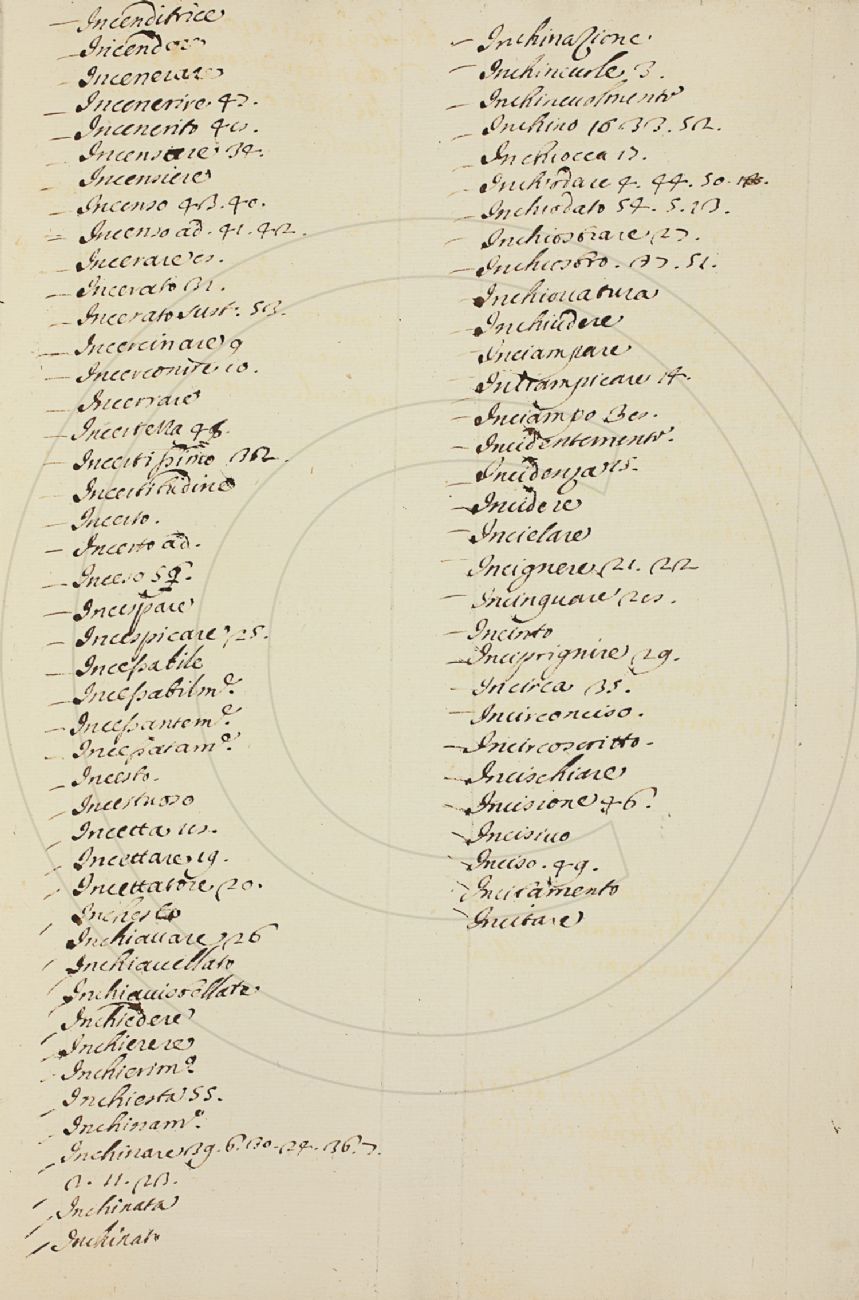 — Incenditrice
— Incendor
— Incenerare
— Incenerire 47.
— Incenerito 4
— Incensare 34.
— Incensiere
— Incenso 43. 40.
= Incenso ad. 41. 42.
— Incerare
— Incerato 31.
— Incerato sust. 53.
— Incercinare 9
— Incerconire 10.
— Incerrare
— Incertezza 48.
— Incertissimo 32.
— Incertitudine
— Incerto.
— Incerto ad.
— Inceso
— Incespare
— Incespicare 25.
— Incessabile
— Incessabilm.e
— Incessantem.e
— Incessatam.e
— Incesto.
— Incestuoso
— Incetta
— Incettare 19.
— Incettatore 20.
Inchiesto
Inchiauare 26
Inchiauellato
Inchiauistellate
Inchiedere
Inchierere
Inchierim.o
Inchiesta 55.
Inchinam.o
Inchinare 39. 6. 30. 24. 36. 7.
2. 11. 23.
Inchinata
Inchinato
— Inchinazione.
— Inchineuole 3.
— Inchineuolmente
— Inchino 16 33. 52.
— Inchiocca 17.
— Inchiodare 4. 44. 50.
— Inchiodato 54. 5. 13.
— Inchiostrare 27.
— Inchiostro. 37. 51.
— Inchiouatura
— Inchiudere
— Inciampare
— Inciampicare 14.
— Inciampo
— Incidentemente.
— Incidenza 15.
— Incidere
— Incielare
— Incignere 21. 22
— Incinguare
— Incinto
— Inciprignire 29.
— Incirca 35.
— Incirconciso.
— Incircoscritto.
— Incischiare
— Incisione 46.
— Incisiuo
Inciso. 49.
Incitamento
Incitare